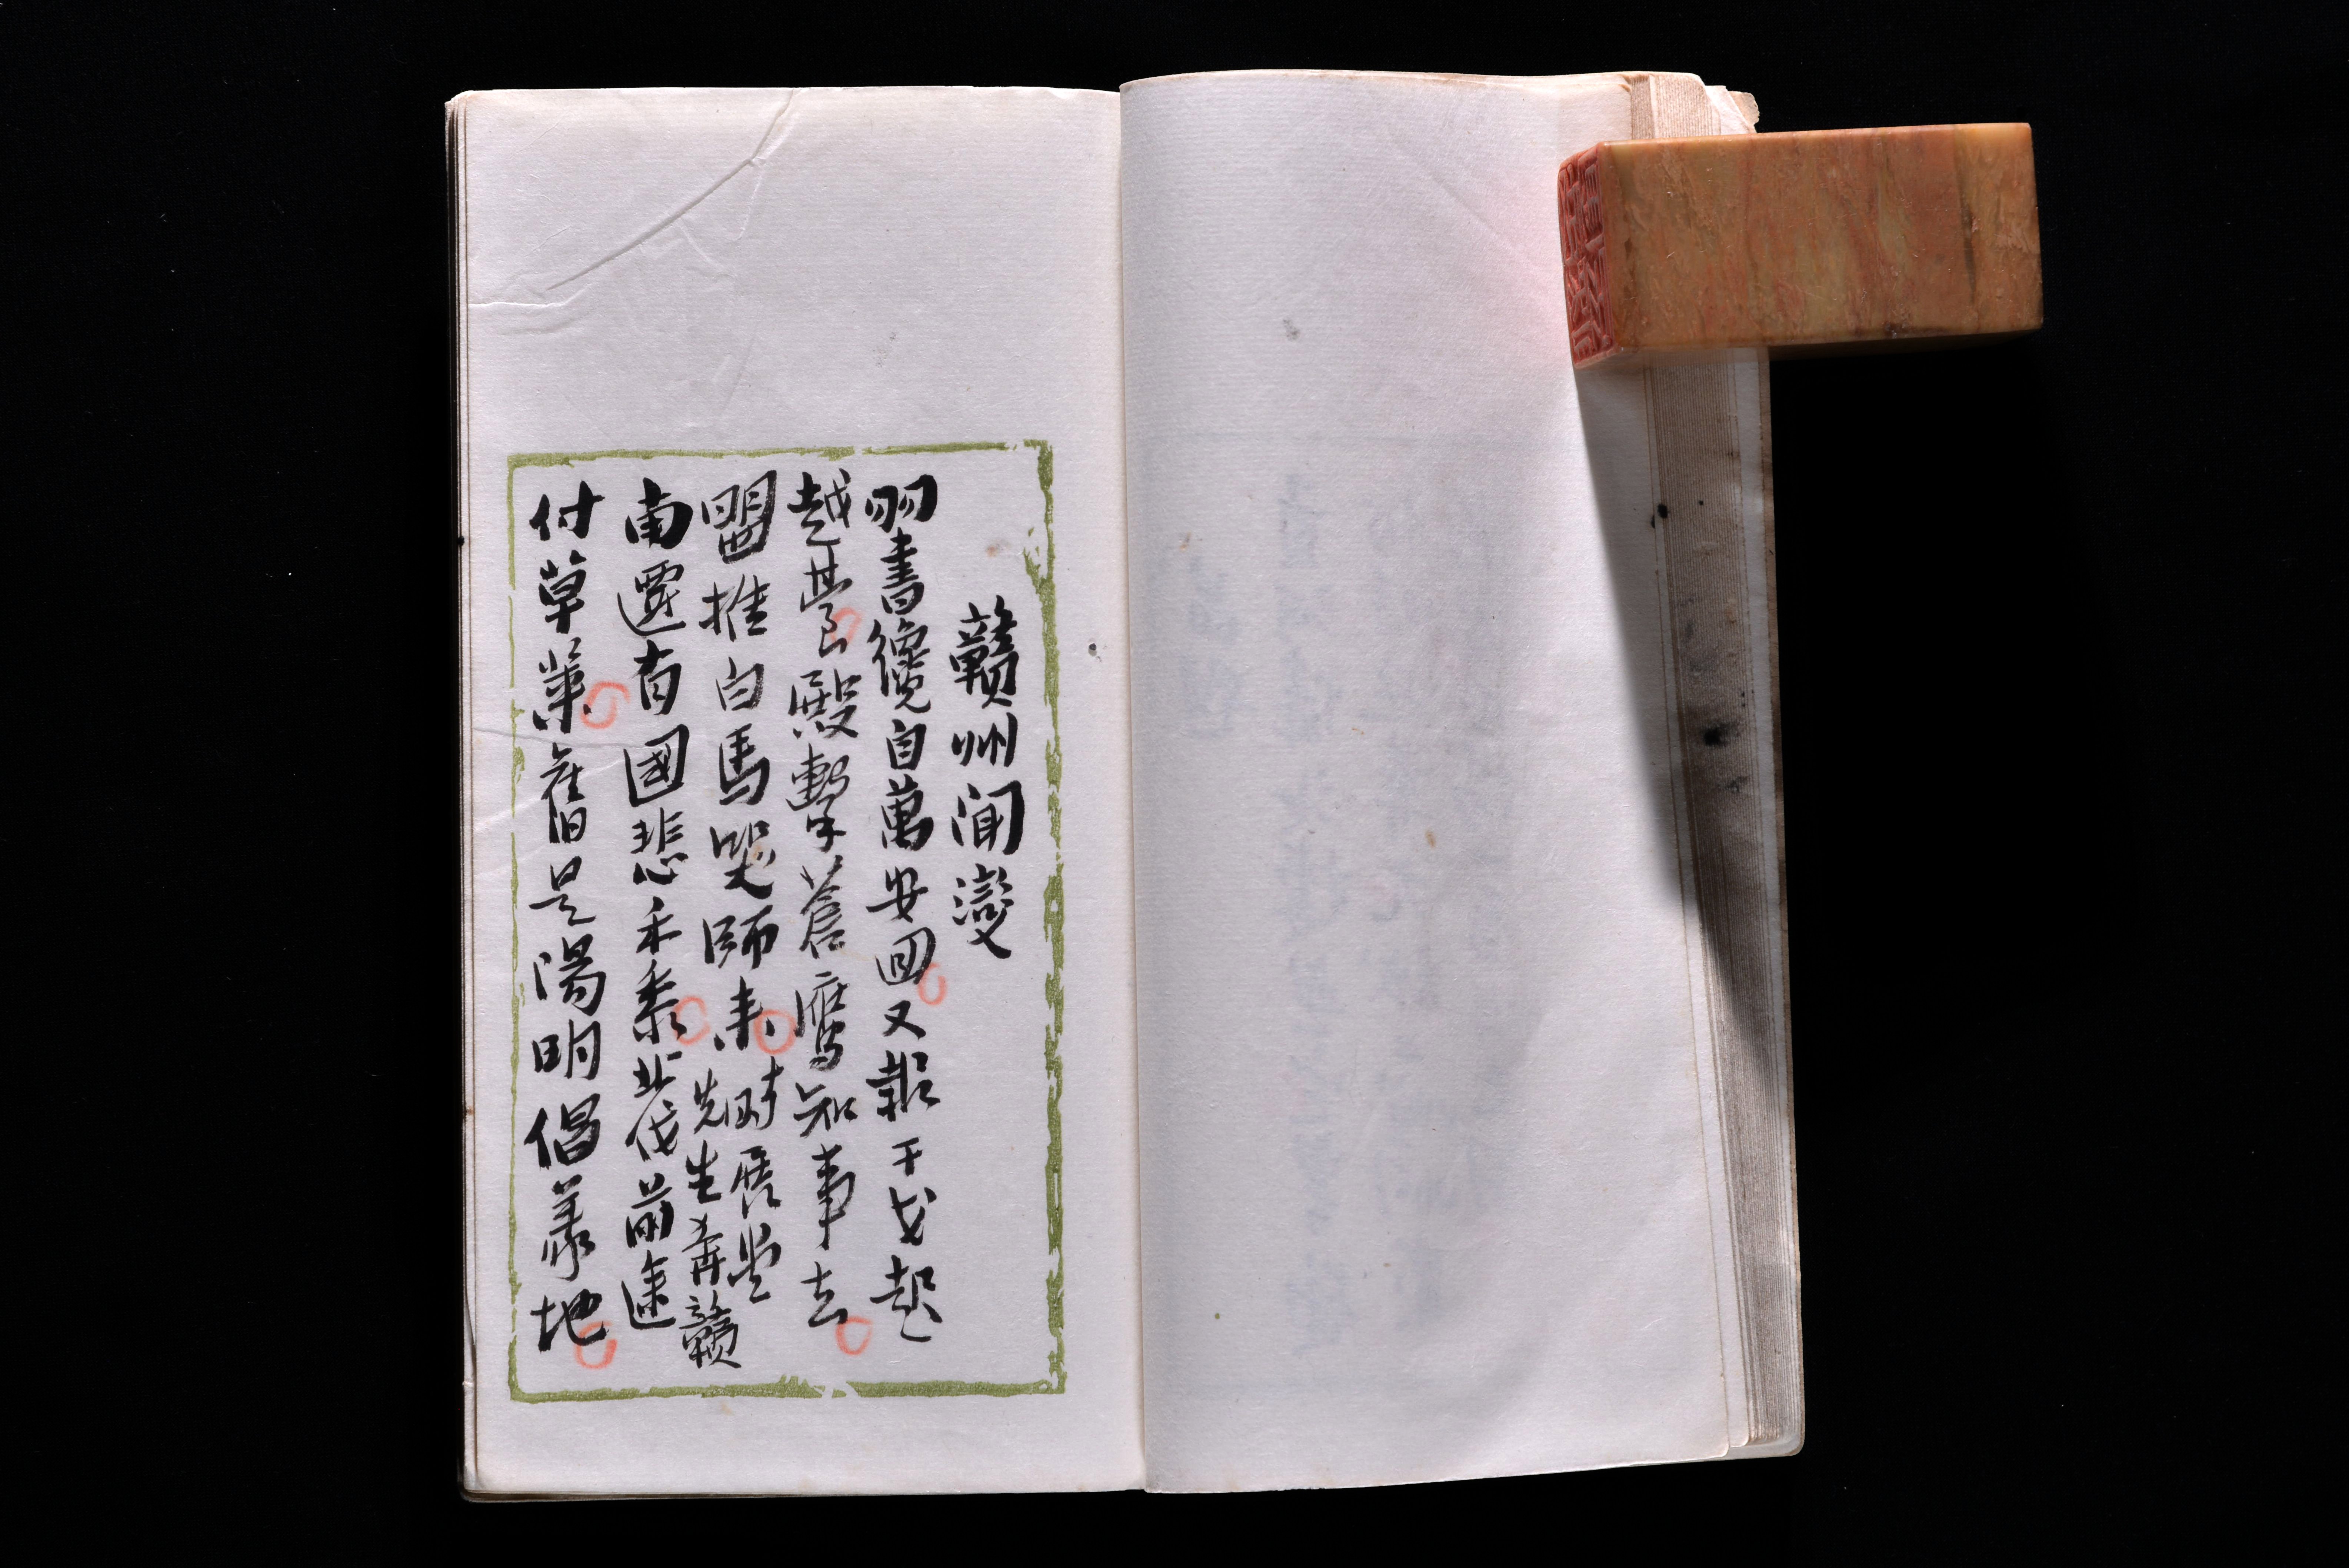 贛州聞變
羽書纔自萬安回又報干戈起
越臺 殿擊蒼鷹知事去
盟推白馬哭師來 時展堂
先生奔贛
南遷有國悲禾黍北伐前途
付草萊舊是陽明倡義地